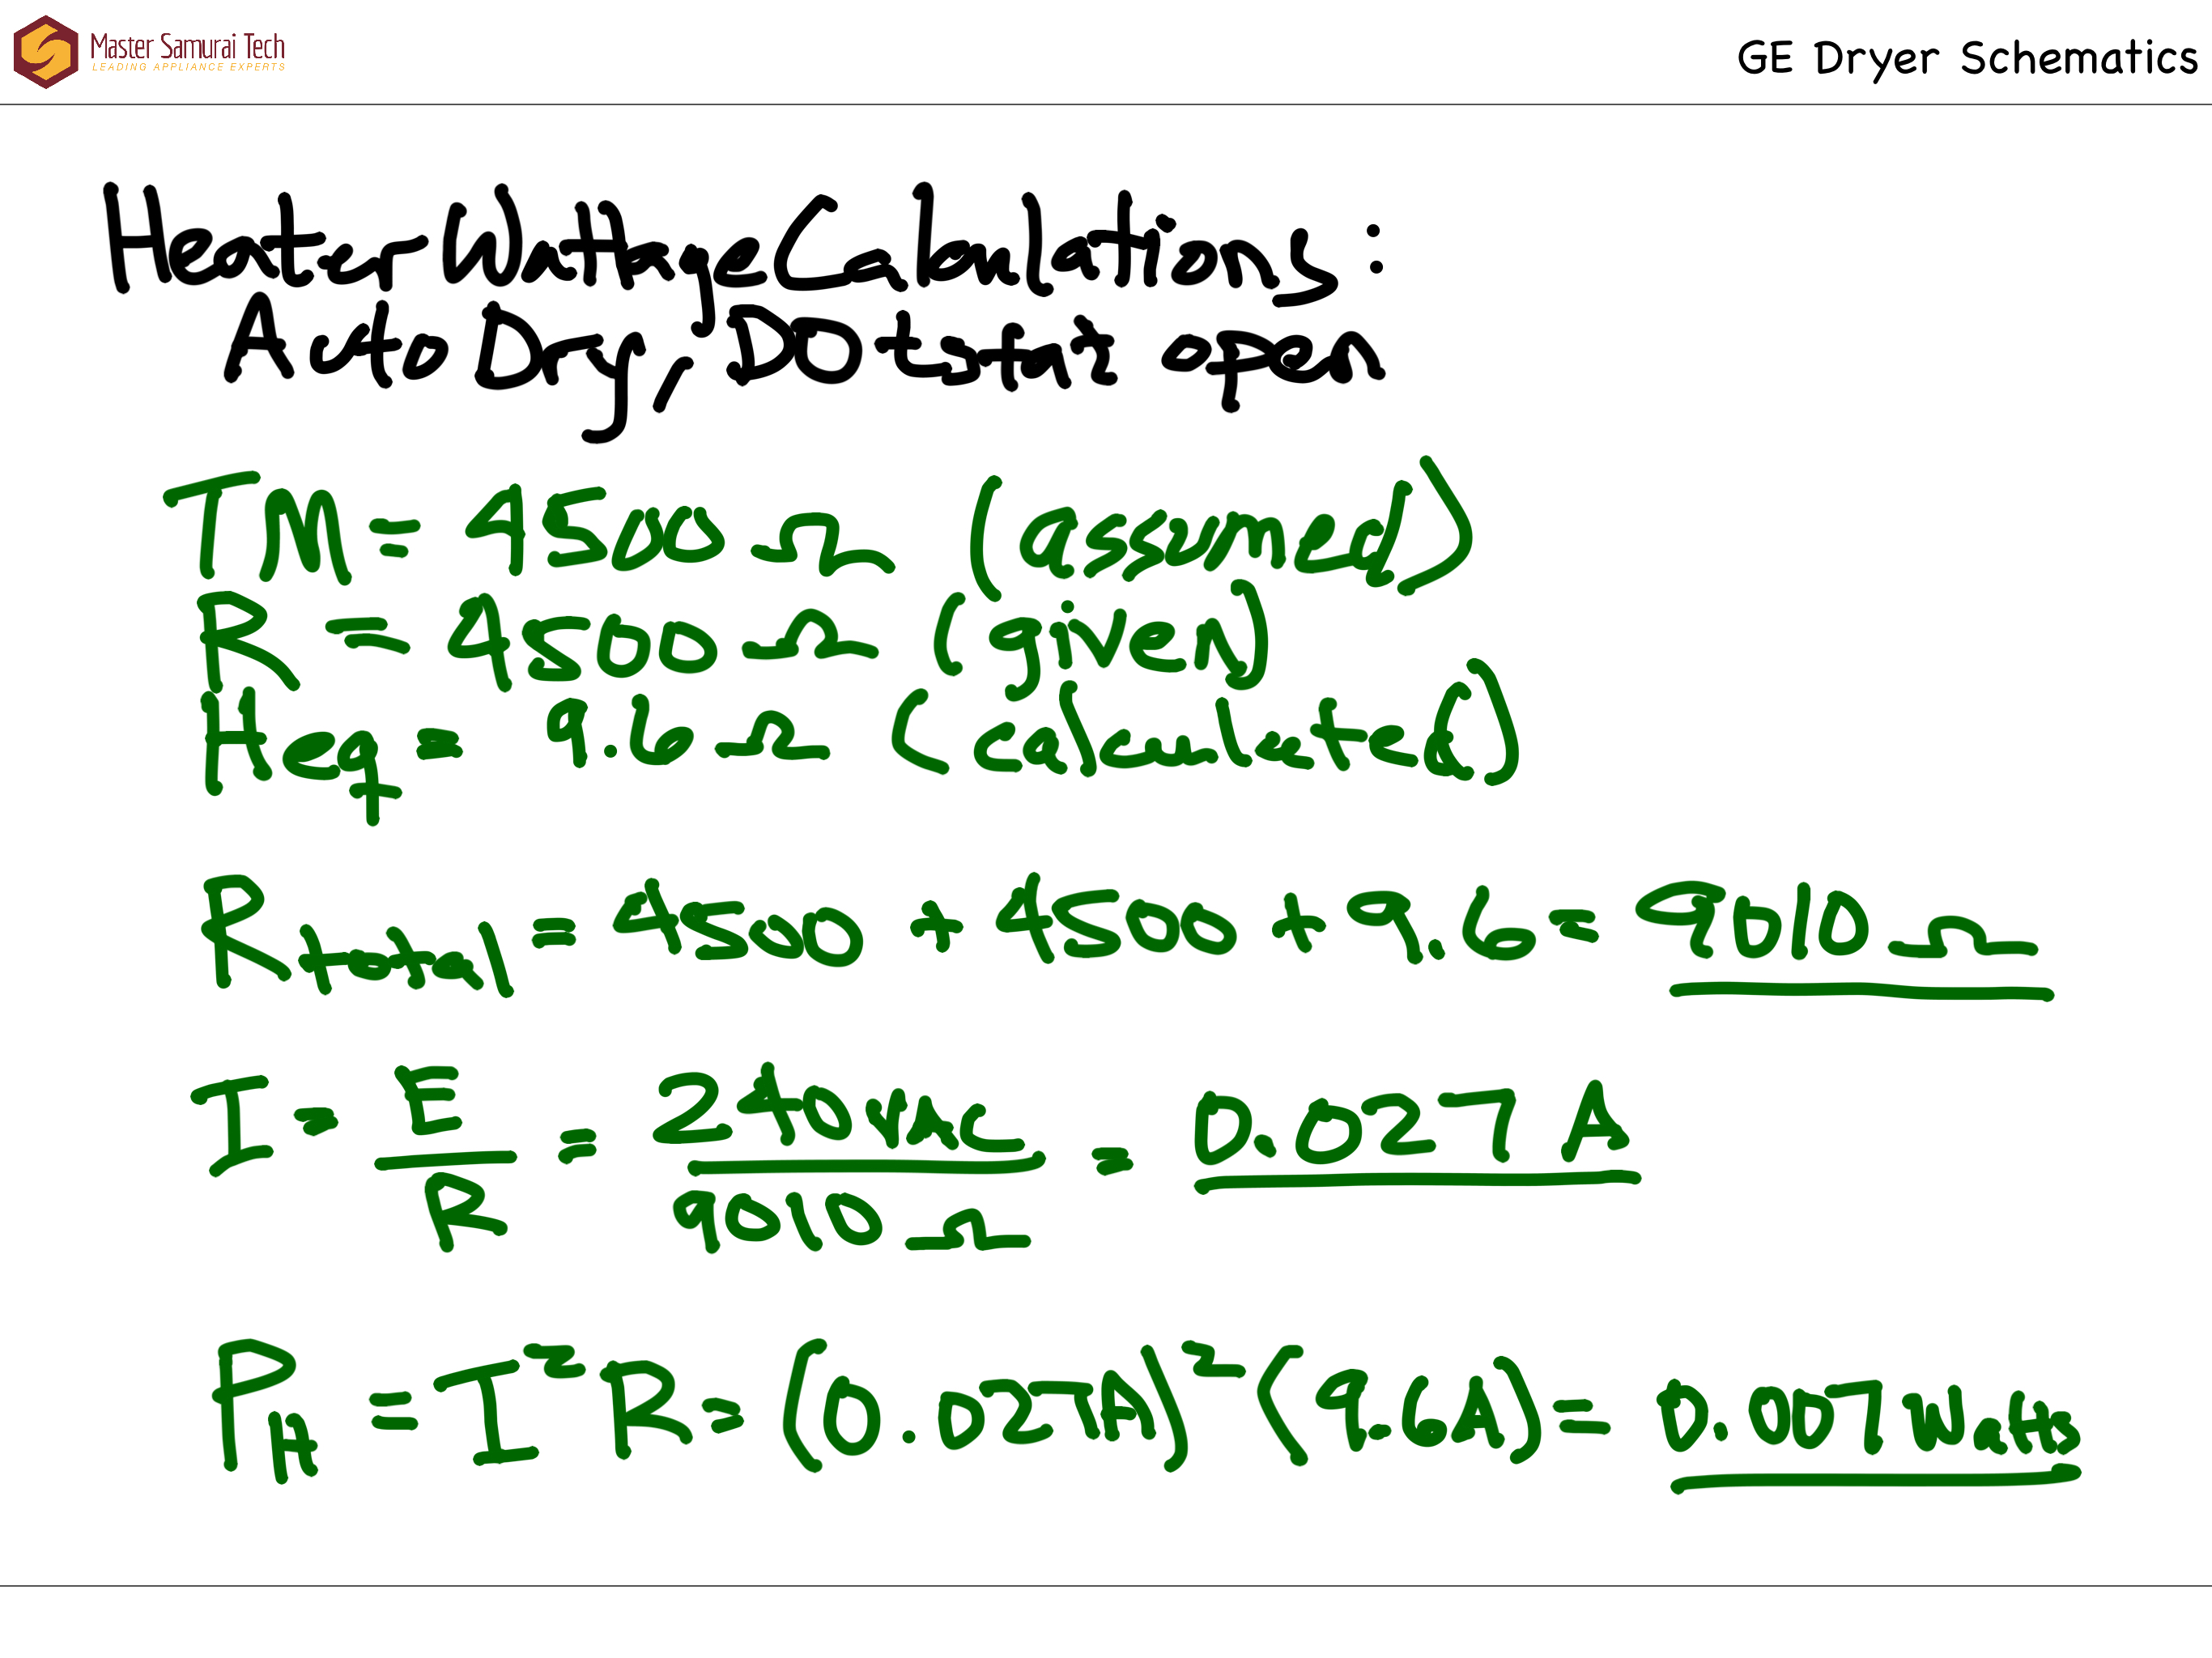 Master Samurai Tech
LEADING APPLIANCE EXPERTS
GE Dryer Schematics
Heater Wattage Calculations:
Auto Dry, DO t-stat open
TM = 4500 Ω (assumed)
R = 4500 Ω (given)
Heq = 9.6 Ω (calculated)
Rtotal = 4500 + 4500 + 9.6 = 9010 Ω
I = E/R = 240 VAC/9010 Ω = 0.027 A
PH = I²R = (0.027A)² (9.6Ω) = 0.007 Watts